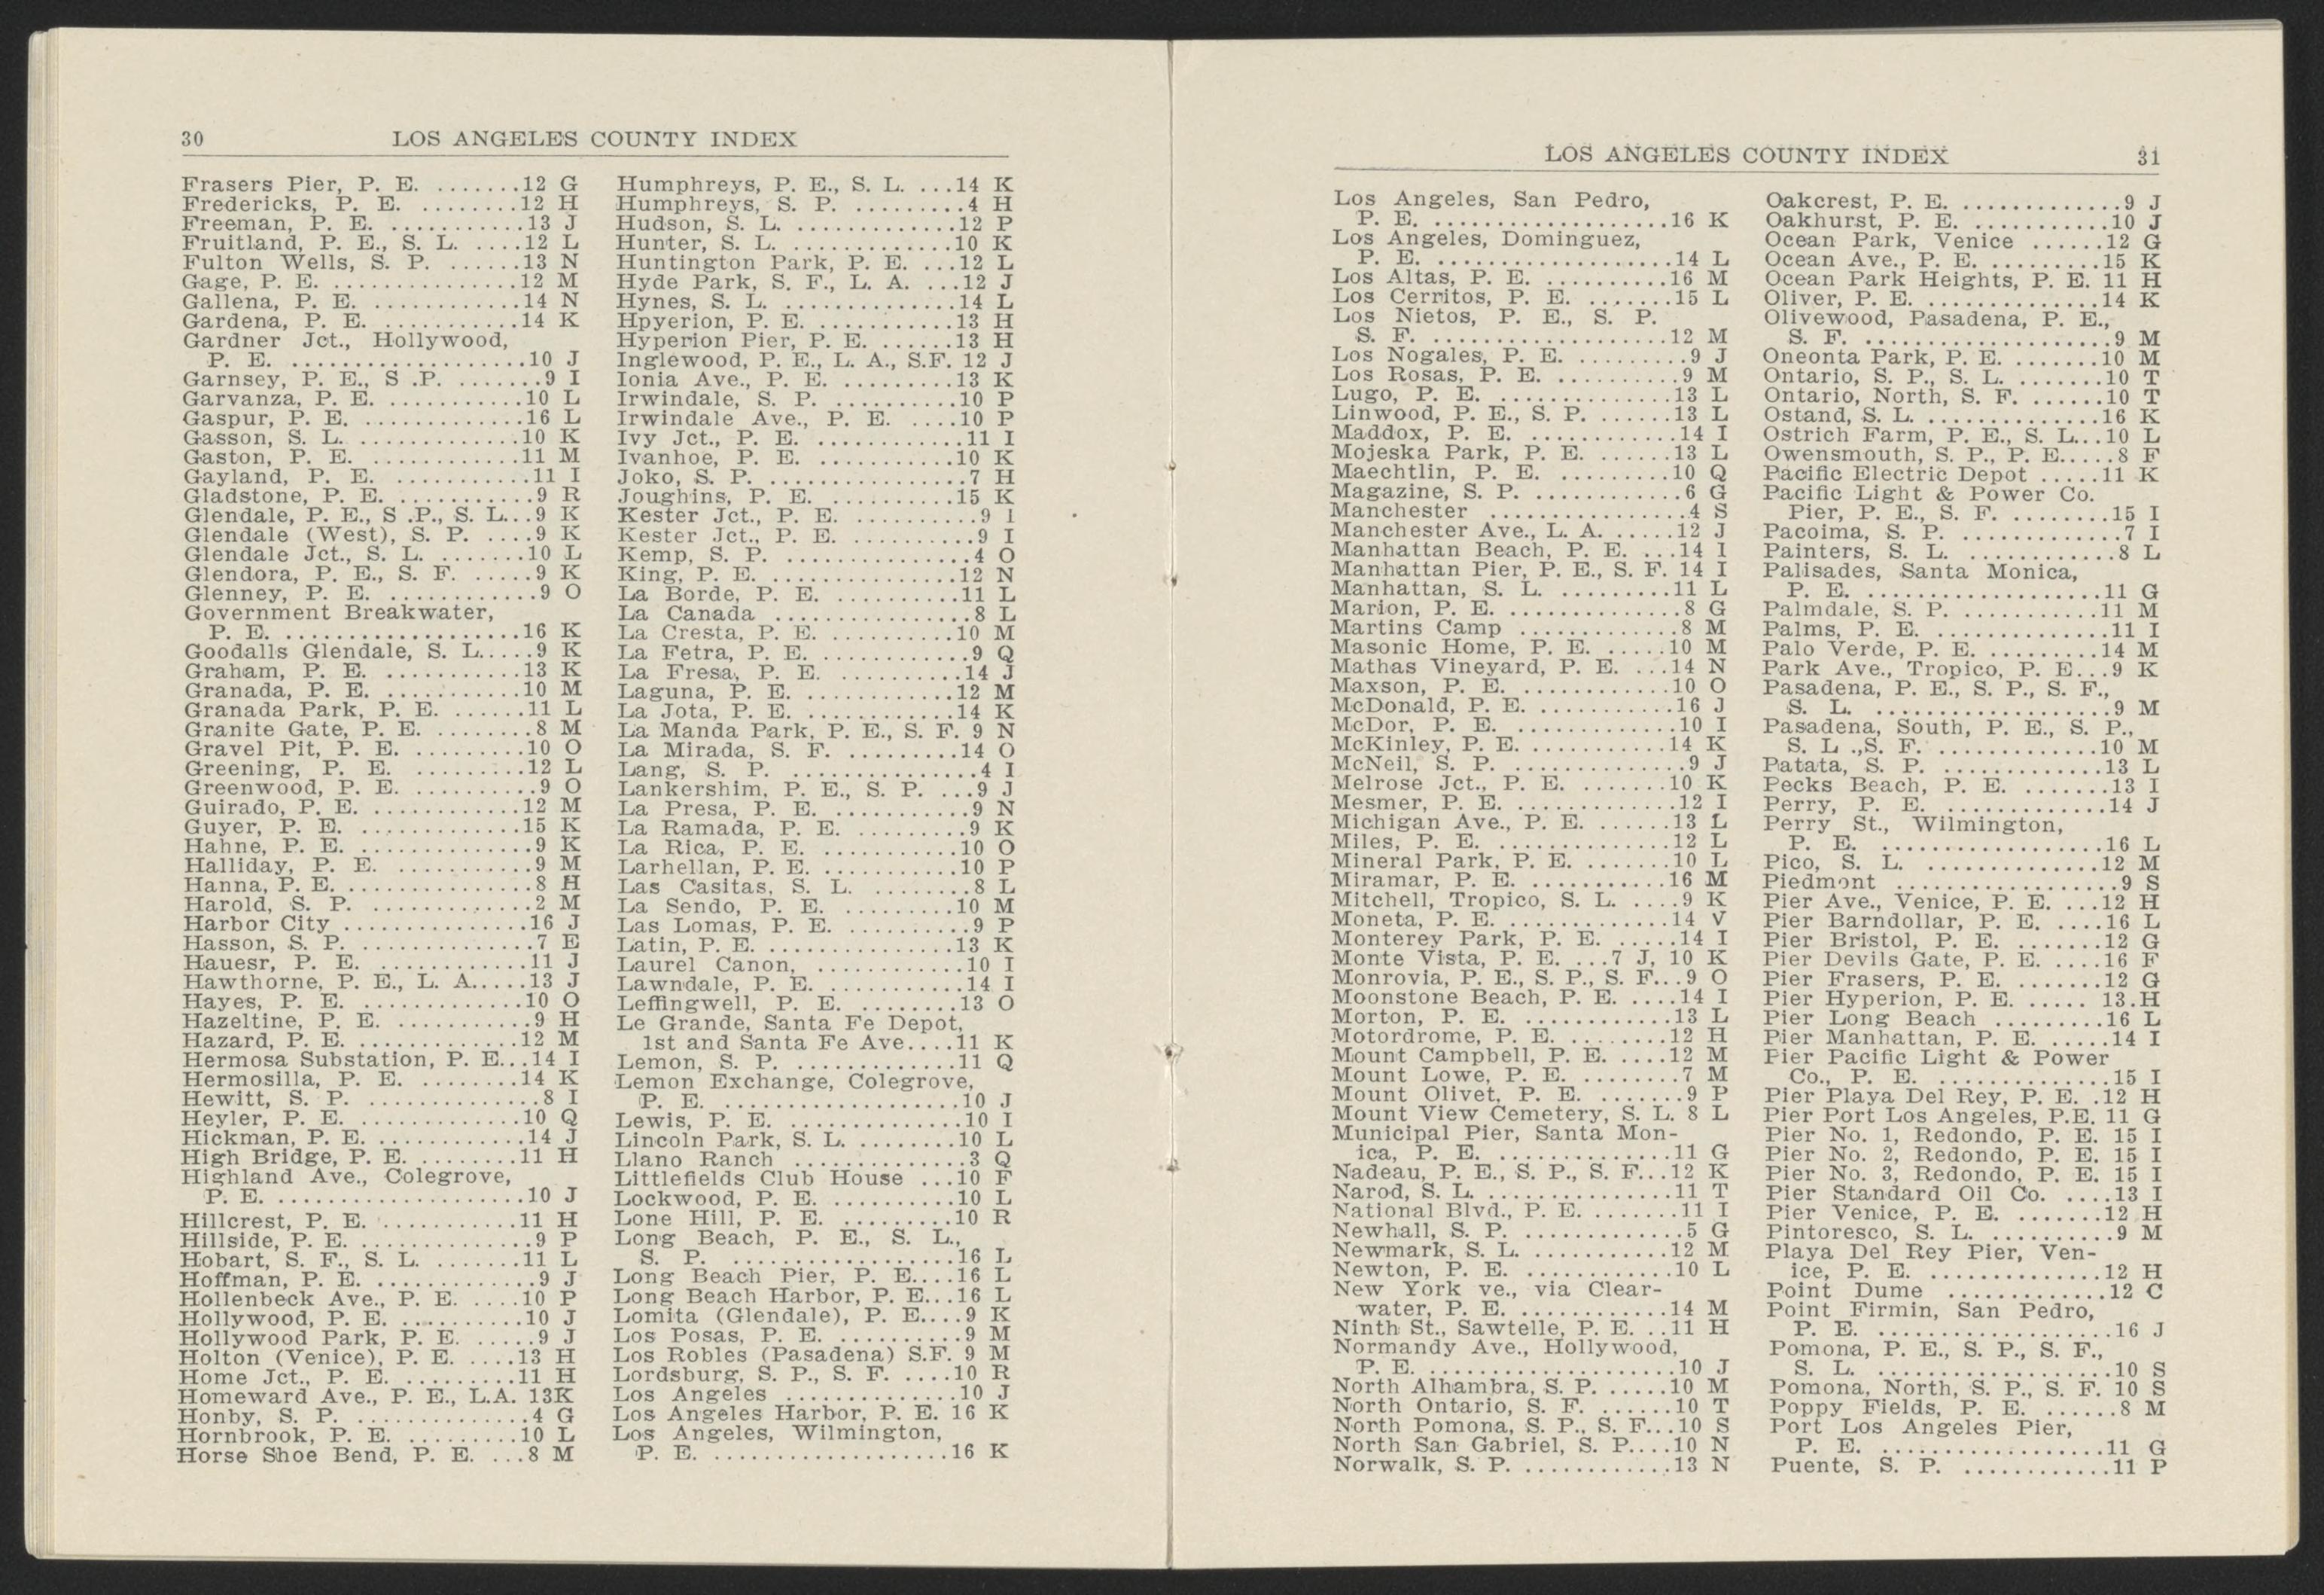 30 LOS ANGELES COUNTY INDEX
Frasers Pier, P. E. .......12 G
Fredericks, P. E. ........12 H
Freeman, P. E. ...........13 J
Fruitland, P. E., S. L. .....12 L
Fulton Wells, S. P. ......13 N
Gage, P. E. ...............12 M
Gallena, P. E. ............14 N
Gardena, P. E. ...........14 K
Gardner Jct., Hollywood,
P. E. ...................10 J
Garnsey, P. E., S .P. .......9 I
Garvanza, P. E. ...........10 L
Gaspur, P. E. .............16 L
Gasson, S. L. .............10 K
Gaston, P. E. ............11 M
Gayland, P. E. ...........11 I
Gladstone, P. E. ...........9 R
Glendale, P. E., S .P., S. L...9 K
Glendale (West), S. P. ....9 K
Glendale Jct., S. L. .......10 L
Glendora, P. E., S. F. .....9 K
Glenney, P. E. ............9 O
Government Breakwater,
P. E. ...................16 K
Goodalls Glendale, S. L.....9 K
Graham, P. E. ............13 K
Granada, P. E. ...........10 M
Granada Park, P. E. ......11 L
Granite Gate, P. E. ........8 M
Gravel Pit, P. E. .........10 O
Greening, P. E. ..........12 L
Greenwood, P. E. ..........9 O
Guirado, P. E. ............12 M
Guyer, P. E. .............15 K
Hahne, P. E. ..............9 K
Halliday, P. E. ...........9 M
Hanna, P. E. ...............8 H
Harold, S. P. .............2 M
Harbor City ...............16 J
Hasson, S. P. ..............7 E
Hauesr, P. E. ............11 J
Hawthorne, P. E., L. A.....13 J
Hayes, P. E. .............10 O
Hazeltine, P. E. ...........9 H
Hazard, P. E. .............12 M
Hermosa Substation, P. E...14 I
Hermosilla, P. E. ........14 K
Hewitt, S. P. ..............8 I
Heyler, P. E. .............10 Q
Hickman, P. E. ............14 J
High Bridge, P. E. ........11 H
Highland Ave., Colegrove,
P. E. ....................10 J
Hillcrest, P. E. ...........11 H
Hillside, P. E. ..............9 P
Hobart, S. F., S. L. .......11 L
Hoffman, P. E. .............9 J
Hollenbeck Ave., P. E. ....10 P
Hollywood, P. E. ..........10 J
Hollywood Park, P. E. .....9 J
Holton (Venice), P. E. ....13 H
Home Jct., P. E. .........11 H
Homeward Ave., P. E., L.A. 13K
Honby, S. P. ..............4 G
Hornbrook, P. E. .........10 L
Horse Shoe Bend, P. E. ...8 M
Humphreys, P. E., S. L. ...14 K
Humphreys, S. P. .........4 H
Hudson, S. L. .............12 P
Hunter, S. L. .............10 K
Huntington Park, P. E. ...12 L
Hyde Park, S. F., L. A. ...12 J
Hynes, S. L. ..............14 L
Hpyerion, P. E. ...........13 H
Hyperion Pier, P. E. ......13 H
Inglewood, P. E., L. A., S.F. 12 J
Ionia Ave., P. E. .........13 K
Irwindale, S. P. ..........10 P
Irwindale Ave., P. E. ....10 P
Ivy Jct., P. E. ............11 I
Ivanhoe, P. E. ...........10 K
Joko, S. P. ................7 H
Joughins, P. E. ..........15 K
Kester Jct., P. E. ..........9 I
Kester Jct., P. E. ..........9 I
Kemp, S. P. ................4 O
King, P. E. ...............12 N
La Borde, P. E. ..........11 L
La Canada ................8 L
La Cresta, P. E. ..........10 M
La Fetra, P. E. ............9 Q
La Fresa, P. E. ..........14 J
Laguna, P. E. ............12 M
La Jota, P. E. ............14 K
La Manda Park, P. E., S. F. 9 N
La Mirada, S. F. ..........14 O
Lang, S. P. ...............4 I
Lankershim, P. E., S. P. ...9 J
La Presa, P. E. ............9 N
La Ramada, P. E. .........9 K
La Rica, P. E. ...........10 O
Larhellan, P. E. ...........10 P
Las Casitas, S. L. ........8 L
La Sendo, P. E. .........10 M
Las Lomas, P. E. ..........9 P
Latin, P. E. ..............13 K
Laurel Canon, ............10 I
Lawndale, P. E. ..........14 I
Leffingwell, P. E. ........13 O
Le Grande, Santa Fe Depot,
1st and Santa Fe Ave....11 K
Lemon, S. P. .............11 Q
Lemon Exchange, Colegrove,
P. E. ...................10 J
Lewis, P. E. ..............10 I
Lincoln Park, S. L. ........10 L
Llano Ranch ..............3 Q
Littlefields Club House ...10 F
Lockwood, P. E. ..........10 L
Lone Hill, P. E. .........10 R
Long Beach, P. E., S. L.,
S. P. ..................16 L
Long Beach Pier, P. E....16 L
Long Beach Harbor, P. E...16 L
Lomita (Glendale), P. E....9 K
Los Posas, P. E. ..........9 M
Los Robles (Pasadena) S.F. 9 M
Lordsburg, S. P., S. F. ....10 R
Los Angeles ..............10 J
Los Angeles Harbor, P. E. 16 K
Los Angeles, Wilmington,
P. E. ...................16 K
LOS ANGELES COUNTY INDEX 31
Los Angeles, San Pedro,
P. E. ...................16 K
Los Angeles, Dominguez,
P. E. ...................14 L
Los Altas, P. E. ..........16 M
Los Cerritos, P. E. .......15 L
Los Nietos, P. E., S. P.
S. F. ...................12 M
Los Nogales, P. E. .........9 J
Los Rosas, P. E. ..........9 M
Lugo, P. E. ..............13 L
Linwood, P. E., S. P. ......13 L
Maddox, P. E. ............14 I
Mojeska Park, P. E. ......13 L
Maechtlin, P. E. .........10 Q
Magazine, S. P. ............6 G
Manchester ................4 S
Manchester Ave., L. A. ......12 J
Manhattan Beach, P. E. ...14 I
Manhattan Pier, P. E., S. F. 14 I
Manhattan, S. L. .........11 L
Marion, P. E. ..............8 G
Martins Camp .............8 M
Masonic Home, P. E. .....10 M
Mathas Vineyard, P. E. ...14 N
Maxson, P. E. ............10 O
McDonald, P. E. ...........16 J
McDor, P. E. .............10 I
McKinley, P. E. ...........14 K
McNeil, S. P. ..............9 J
Melrose Jct., P. E. .......10 K
Mesmer, P. E. .............12 I
Michigan Ave., P. E. ......13 L
Miles, P. E. ..............12 L
Mineral Park, P. E. .......10 L
Miramar, P. E. ...........16 M
Mitchell, Tropico, S. L. ....9 K
Moneta, P. E. .............14 V
Monterey Park, P. E. .....14 I
Monte Vista, P. E. ...7 J, 10 K
Monrovia, P. E., S. P., S. F...9 O
Moonstone Beach, P. E. ....14 I
Morton, P. E. ............13 L
Motordrome, P. E. ........12 H
Mount Campbell, P. E. ....12 M
Mount Lowe, P. E. ........7 M
Mount Olivet, P. E. .......9 P
Mount View Cemetery, S. L. 8 L
Municipal Pier, Santa Mon-
ica, P. E. ..............11 G
Nadeau, P. E., S. P., S. F...12 K
Narod, S. L. ...............11 T
National Blvd., P. E. .......11 I
Newhall, S. P. .............5 G
Newmark, S. L. ...........12 M
Newton, P. E. ............10 L
New York ve., via Clear-
water, P. E. ............14 M
Ninth St., Sawtelle, P. E. ..11 H
Normandy Ave., Hollywood,
P. E. ....................10 J
North Alhambra, S. P. ......10 M
North Ontario, S. F. ......10 T
North Pomona, S. P., S. F...10 S
North San Gabriel, S. P....10 N
Norwalk, S. P. ............13 N
Oakcrest, P. E. .............9 J
Oakhurst, P. E. ...........10 J
Ocean Park, Venice ......12 G
Ocean Ave., P. E. .........15 K
Ocean Park Heights, P. E. 11 H
Oliver, P. E. ..............14 K
Olivewood, Pasadena, P. E.,
S. F. ....................9 M
Oneonta Park, P. E. .......10 M
Ontario, S. P., S. L. .......10 T
Ontario, North, S. F. ......10 T
Ostand, S. L. ..............16 K
Ostrich Farm, P. E., S. L...10 L
Owensmouth, S. P., P. E.....8 F
Pacific Electric Depot .....11 K
Pacific Light & Power Co.
Pier, P. E., S. F. ........15 I
Pacoima, S. P. .............7 I
Painters, S. L. ............8 L
Palisades, Santa Monica,
P. E. ...................11 G
Palmdale, S. P. ...........11 M
Palms, P. E. ..............11 I
Palo Verde, P. E. .........14 M
Park Ave., Tropico, P. E...9 K
Pasadena, P. E., S. P., S. F.,
S. L. ...................9 M
Pasadena, South, P. E., S. P.,
S. L .,S. F. .............10 M
Patata, S. P. .............13 L
Pecks Beach, P. E. .......13 I
Perry, P. E. .............14 J
Perry St., Wilmington,
P. E. ..................16 L
Pico, S. L. ..............12 M
Piedmont ..................9 S
Pier Ave., Venice, P. E. ...12 H
Pier Barndollar, P. E. ....16 L
Pier Bristol, P. E. .......12 G
Pier Devils Gate, P. E. ....16 F
Pier Frasers, P. E. .......12 G
Pier Hyperion, P. E. ..... 13.H
Pier Long Beach .........16 L
Pier Manhattan, P. E. ......14 I
Pier Pacific Light & Power
Co., P. E. ..............15 I
Pier Playa Del Rey, P. E. .12 H
Pier Port Los Angeles, P.E. 11 G
Pier No. 1, Redondo, P. E. 15 I
Pier No. 2, Redondo, P. E. 15 I
Pier No. 3, Redondo, P. E. 15 I
Pier Standard Oil Co. ....13 I
Pier Venice, P. E. .......12 H
Pintoresco, S. L. ..........9 M
Playa Del Rey Pier, Ven-
ice, P. E. ..............12 H
Point Dume .............12 C
Point Firmin, San Pedro,
P. E. ...................16 J
Pomona, P. E., S. P., S. F.,
S. L. ...................10 S
Pomona, North, S. P., S. F. 10 S
Poppy Fields, P. E. ......8 M
Port Los Angeles Pier,
P. E. ..................11 G
Puente, S. P. ............11 P